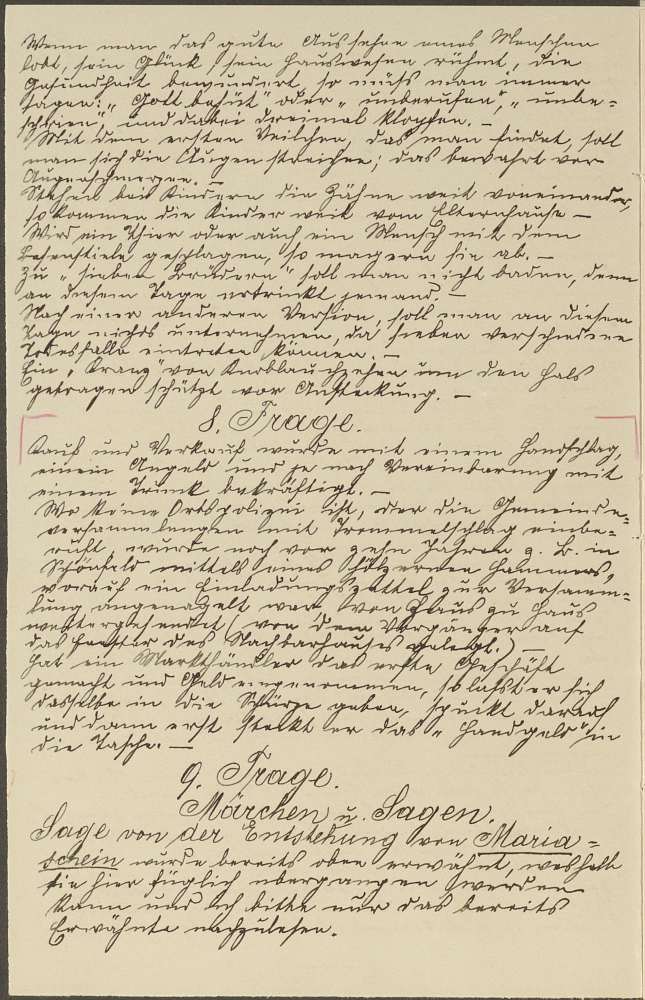 Wenn man das gute Aussehen eines Menschen
lobt, sein Glück, sein Hauswesen rühmt, die
Gesundheit bewundert, so muß man immer
sagen: „Gott behüt", oder „unberufen", „unbe=
schrien", und dabei dreimal klopfen. —
Mit dem ersten Veilchen, das man findet, soll
man sich die Augen streichen; das bewahrt vor
Augenschmerzen. —
Stehen bei Kindern die Zähne weit voneinander,
so kommen die Kinder weit vom Elternhause —
Wird ein Thier oder auch ein Mensch mit dem
Besenstiele geschlagen, so magern sie ab. —
Zu „sieben Brüdern" soll man nicht baden, denn
an diesem Tage ertrinkt jemand. —
Nach einer anderen Version, soll man an diesem
Tage nichts unternehmen, da sieben verschiedene
Todesfälle eintreten können. —
Ein „Kranz" von Knoblauchzehen um den Hals
getragen schützt vor Ansteckung. —
8. Frage.
Kauf und Verkauf wurde mit einem Handschlag,
einem Angeld und je nach Vereinbarung mit
einem Trunk bekräftigt. —
Wo keine Ortspolizei ist, der die Gemeinde=
versammlungen mit Trommelschlag einbe=
ruft, wurde noch vor zehn Jahren z. B. in
Schönfeld mittels eines hölzernen Hammers,
worauf ein Einladungszettel zur Versamm=
lung angenagelt war, von Haus zu Haus
weitergesendet (von dem Vorgänger auf
das Fenster des Nachbarhauses gelegt.) —
Hat ein Markthändler das erste Geschäft
gemacht und Geld eingenommen, so lässt er sich
dasselbe in die Schürze geben, spuckt darauf
und dann erst steckt er das „Handgeld" in
die Tasche. —
9. Frage.
Märchen u. Sagen.
Sage von der Entstehung von Maria=
schein wurde bereits oben erwähnt, weshalb
sie hier füglich übergangen werden
kann und ich bitte nur das bereits
Erwähnte nachzulesen.